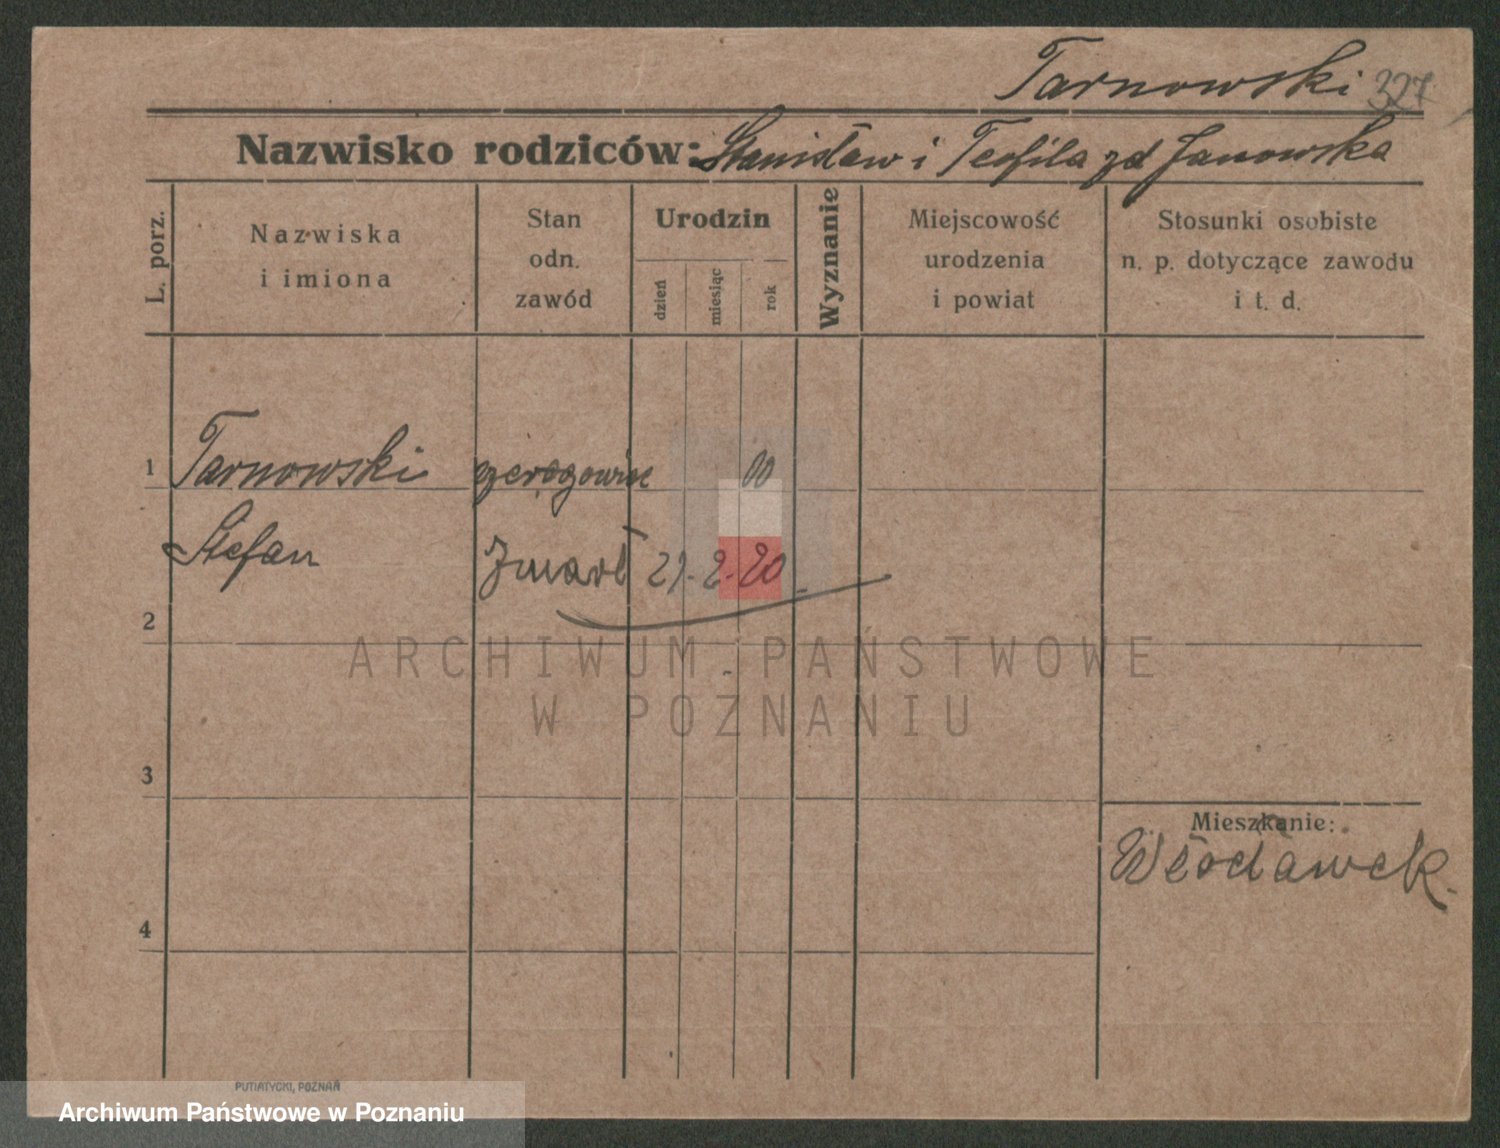 Tarnowski 327
Nazwisko rodziców: Stanisław i Teofila zd Janowska
L. porz.
Nazwiska
i imiona
Stan
odn.
zawód
Urodzin
dzień
miesiąc
rok
Wyznanie
Miejscowość
urodzenia
i powiat
Stosunki osobiste
n. p. dotyczące zawodu
i t. d.
1 Tarnowski 00
Stefan Zmarł 29.2.20
2
ARCHIWUM PAŃSTWOWE
W POZNANIU
3
Mieszkanie:
Włocławek.
4
PUTIATYCKI, POZNAŃ
Archiwum Państwowe w Poznaniu